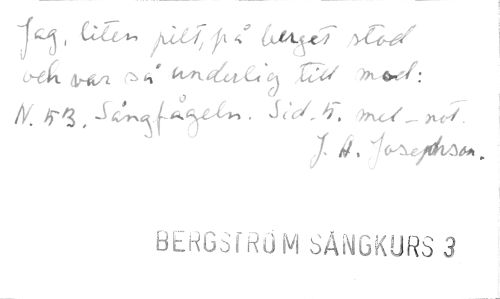 Jag, liten pilt, på berget stod
och var så underlig till mod:
N. 53. Sångfågeln. Sid. 5. mel-not.
J. A. Josephson.
BERGSTRÖM SÅNGKURS 3